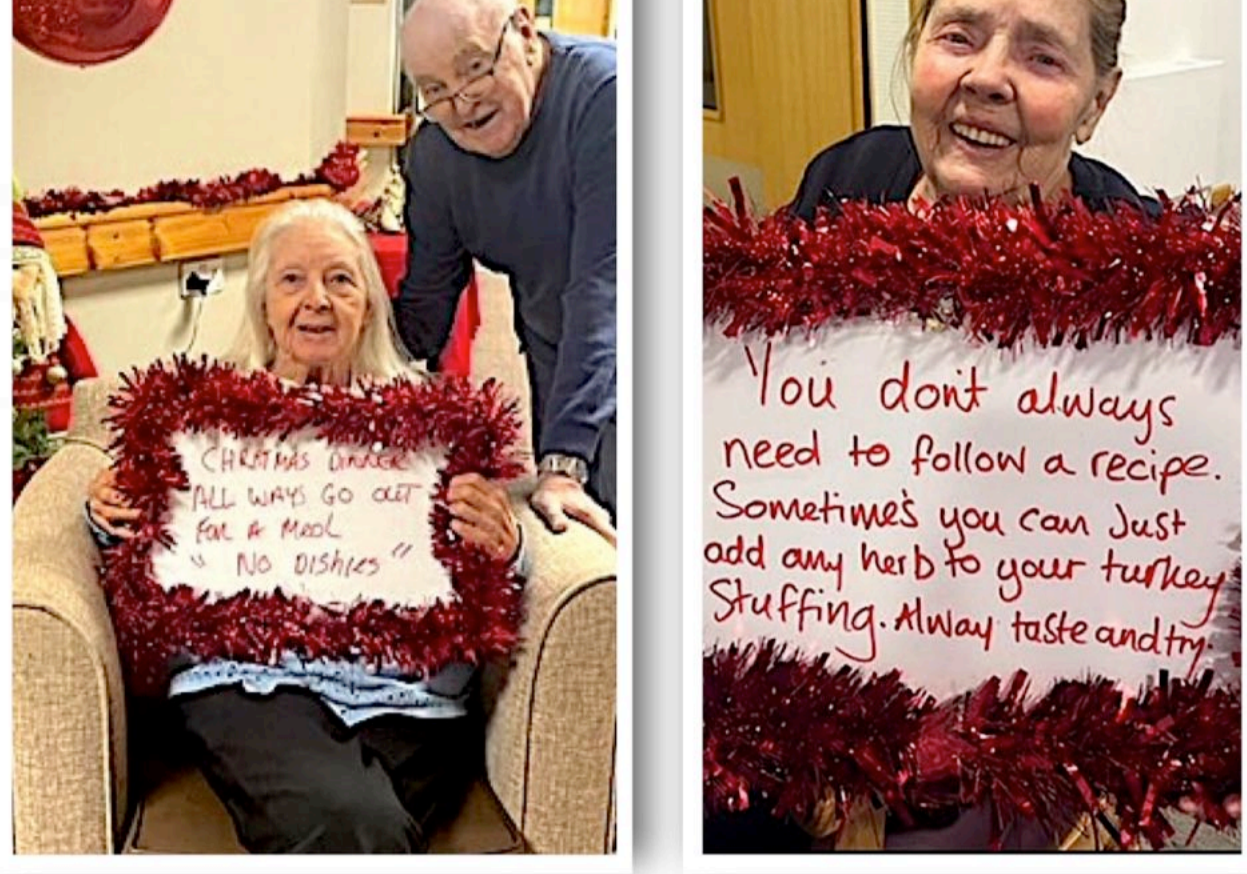 CHRISTMAS DINNER
ALL WAYS GO OUT
FOR A MEAL
" NO DISHIES "
You don't always
need to follow a recipe.
Sometimes you can Just
add any herb to your turkey
Stuffing. Alway taste and try.